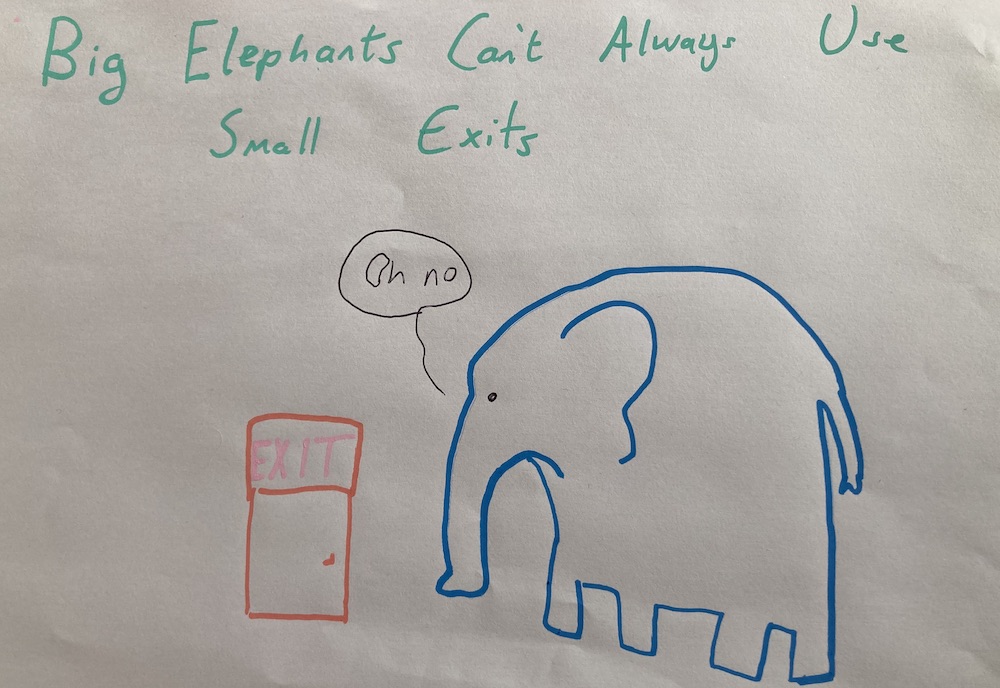 Big Elephants Can't Always Use
Small Exits
Oh no
EXIT